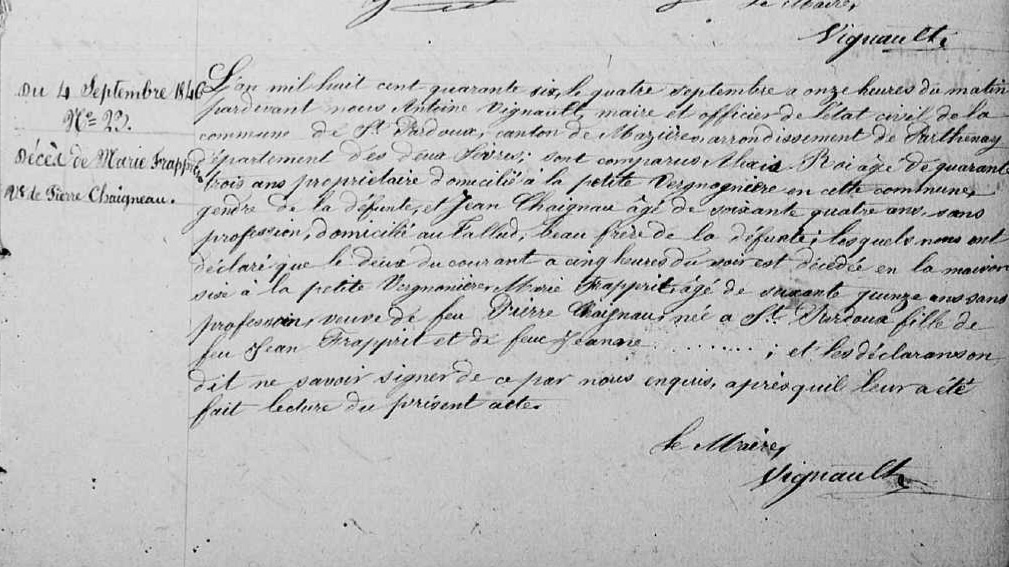 Le Maire,
Vignault
Du 4 Septembre 1846
N° 23.
Décès de Marie Frapprit
Vve de Pierre Chaigneau.
L'an mil huit cent quarante six, le quatre septembre a onze heures du matin
pardevant nous Antoine Vignault, maire et officier de l'état civil de la
commune de St Pardoux, canton de Mazières, arrondissement de Parthenay
département des deux Sèvres; sont comparus Alexis Roi âgé de quarante
trois ans propriétaire domicilié à la petite Vergnonière en cette commune,
gendre de la défunte, et Jean Chaignau âgé de soixante quatre ans, sans
profession, domicilié au Tallud, beau frère de la défunte; lesquels nous ont
déclaré que le deux du courant a cinq heures du soir est décédée en la maison
sise à la petite Vergnonière, Marie Frapprit, âgé de soixante quinze ans sans
profession, veuve de feu Pierre Chaignau, née a St Pardoux fille de
feu Jean Frapprit et de feue Jeanne ..........; et les déclarans on
dit ne savoir signer de ce par nous enquis, après quil leur a été
fait lecture du présent acte.
Le Maire,
Vignault